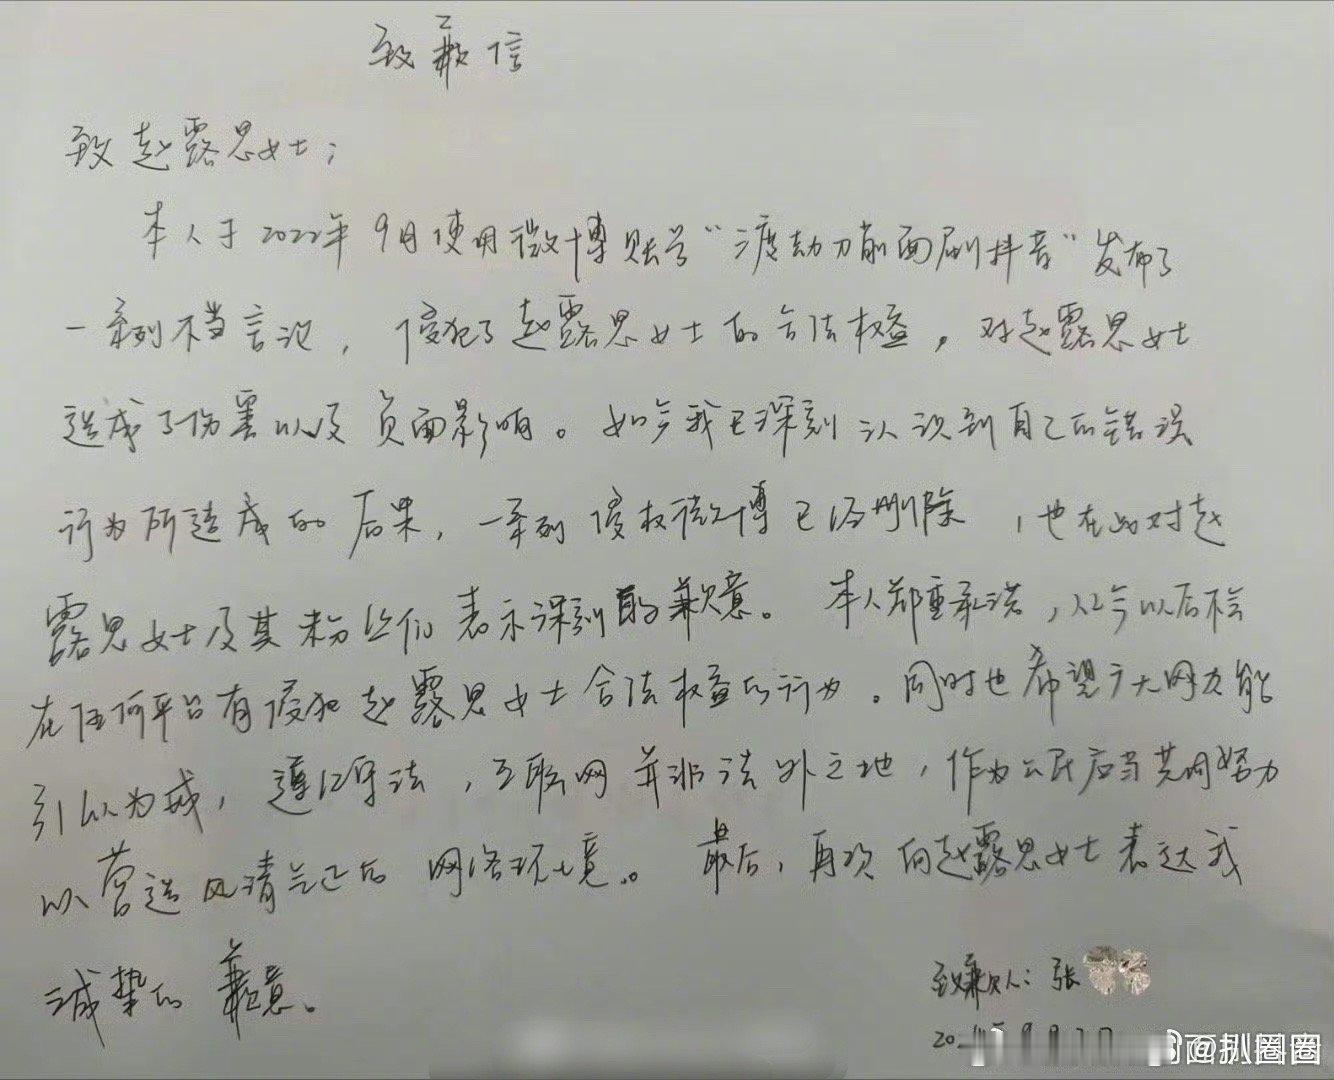 致歉信
致赵露思女士：
本人于2022年9月使用微博账号“渡劫刀前面刷抖音”发布了
一系列不当言论，侵犯了赵露思女士的合法权益，对赵露思女士
造成了伤害以及负面影响。如今我已深刻认识到自己的错误
行为所造成的后果，一系列侵权微博已经删除，也在此对赵
露思女士及其粉丝们表示深刻的歉意。本人郑重承诺，从今以后不会
在任何平台有侵犯赵露思女士合法权益的行为。同时也希望广大网友能
引以为戒，遵纪守法，互联网并非法外之地，作为公民应当共同努力
以营造风清气正的网络环境。最后，再次向赵露思女士表达我
诚挚的歉意。
致歉人：张
@扒圈圈